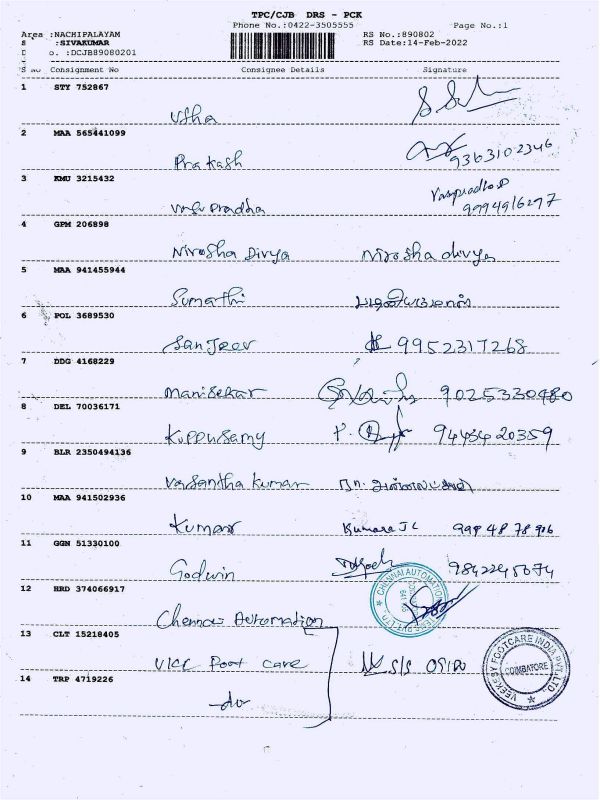 TPC/CJB DRS - PCK
Phone No.:0422-3505555 Page No.:1
Area :NACHIPALAYAM RS No.:890802
S :SIVAKUMAR RS Date:14-Feb-2022
D o. :DCJB89080201
S No Consignment No Consignee Details Signature
1 STY 752867
Usha
2 MAA 565441099
Prakash 9363102346
3 KMU 3215432
pradha 9994916297
4 GPM 206898
Nirosha Divya Nirosha divya
5 MAA 941455944
Sumathi
6 POL 3689530
Sanjeev 9952317268
7 DDG 4168229
Manisekar 9025330480
8 DEL 70036171
Kuppusamy 9443420359
9 BLR 2350494136
Vasantha Kumar
10 MAA 941502936
Kumar
11 GGN 51330100
Godwin
12 HRD 374066917
Chennai Automation
CHENNAI AUTOMATION
13 CLT 15218405
Foot Care
VEEKESY FOOTCARE INDIA PVT. LTD.
COIMBATORE
14 TRP 4719226
-do